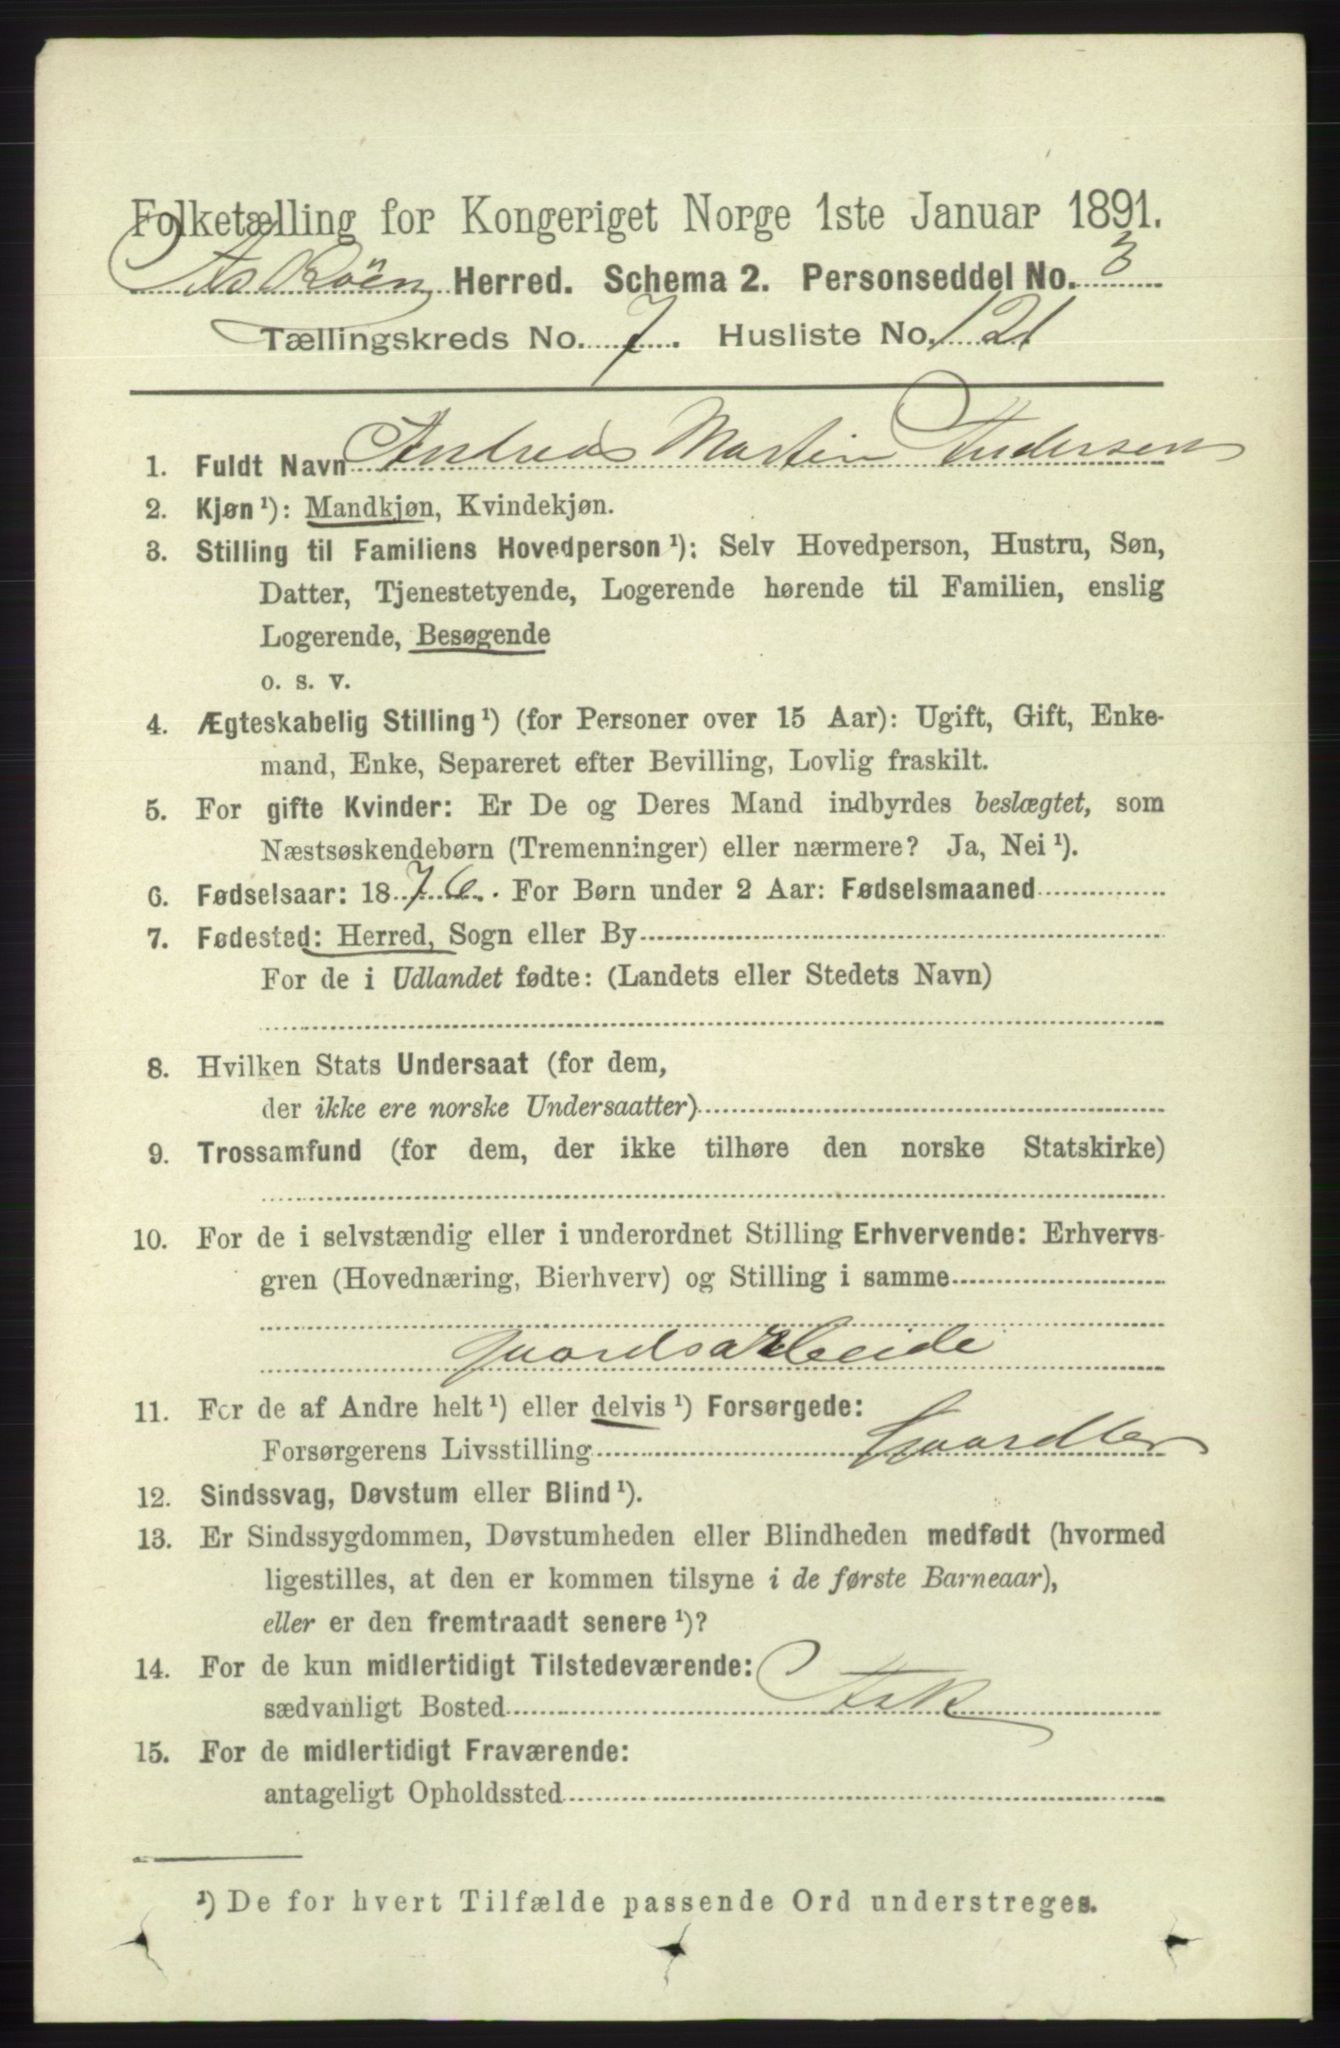 Folketælling for Kongeriget Norge 1ste Januar 1891.
Askøen Herred. Schema 2. Personseddel No. 3
Tællingskreds No. 7. Husliste No. 121
1. Fuldt Navn Andreas Martin Andersen
2. Kjøn ¹): Mandkjøn, Kvindekjøn.
3. Stilling til Familiens Hovedperson ¹): Selv Hovedperson, Hustru, Søn,
Datter, Tjenestetyende, Logerende hørende til Familien, enslig
Logerende, Besøgende
o. s. v.
4. Ægteskabelig Stilling ¹) (for Personer over 15 Aar): Ugift, Gift, Enke-
mand, Enke, Separeret efter Bevilling, Lovlig fraskilt.
5. For gifte Kvinder: Er De og Deres Mand indbyrdes beslægtet, som
Næstsøskendebørn (Tremenninger) eller nærmere? Ja, Nei ¹).
6. Fødselsaar: 1876. For Børn under 2 Aar: Fødselsmaaned
7. Fødested: Herred, Sogn eller By
For de i Udlandet fødte: (Landets eller Stedets Navn)
8. Hvilken Stats Undersaat (for dem,
der ikke ere norske Undersaatter)
9. Trossamfund (for dem, der ikke tilhøre den norske Statskirke)
10. For de i selvstændig eller i underordnet Stilling Erhvervende: Erhvervs-
gren (Hovednæring, Bierhverv) og Stilling i samme
Gaardsarbeide
11. For de af Andre helt ¹) eller delvis ¹) Forsørgede:
Forsørgerens Livsstilling Gaardbr
12. Sindssvag, Døvstum eller Blind ¹).
13. Er Sindssygdommen, Døvstumheden eller Blindheden medfødt (hvormed
ligestilles, at den er kommen tilsyne i de første Barneaar),
eller er den fremtraadt senere ¹)?
14. For de kun midlertidigt Tilstedeværende:
sædvanligt Bosted Ask
15. For de midlertidigt Fraværende:
antageligt Opholdssted
¹) De for hvert Tilfælde passende Ord understreges.